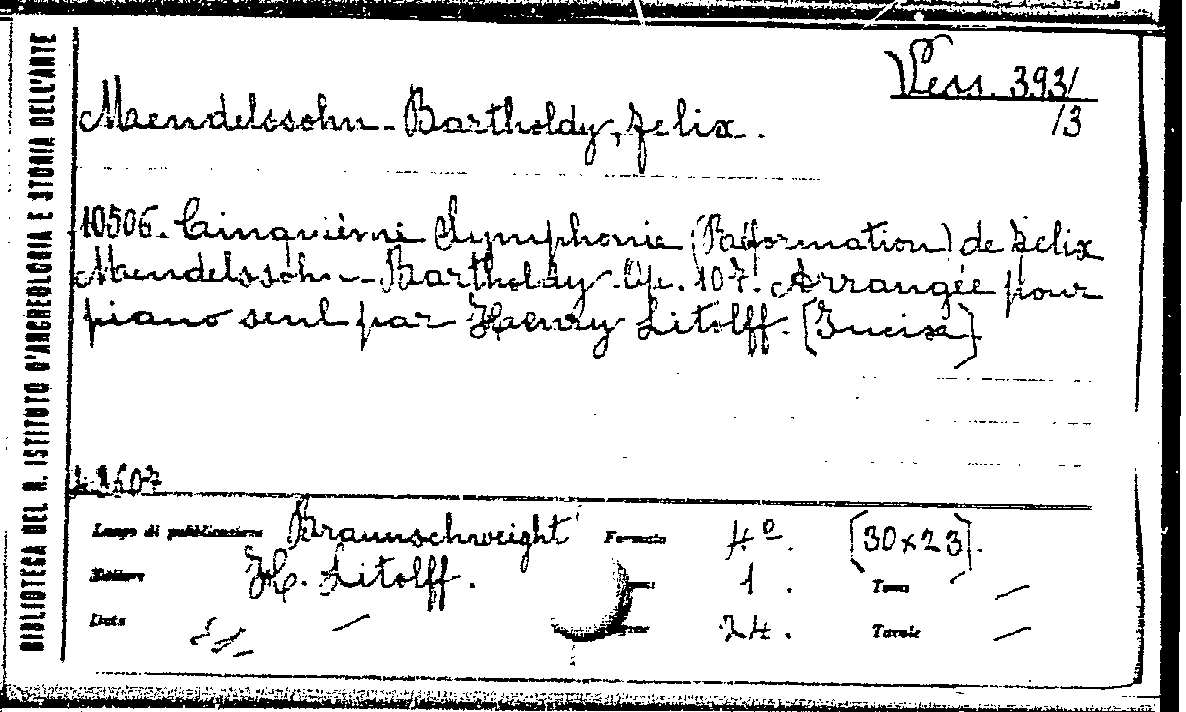 BIBLIOTECA DEL R. ISTITUTO D'ARCHEOLOGIA E STORIA DELL'ARTE
Vess. 393/
/3
Maendelssohn-Bartholdy, Felix.
10506. Cinquième Symphonie (Raiformation) de Felix
Maendelssohn-Bartholdy. Op. 107. Arrangée pour
piano seul par Haenry Litolff. [Incisa].
Luogo di pubblicazione Braunschweight Formato 4º. [30x23].
Editore H. Litolff. 1. Tomi —
Data — Pagine 24. Tavole —